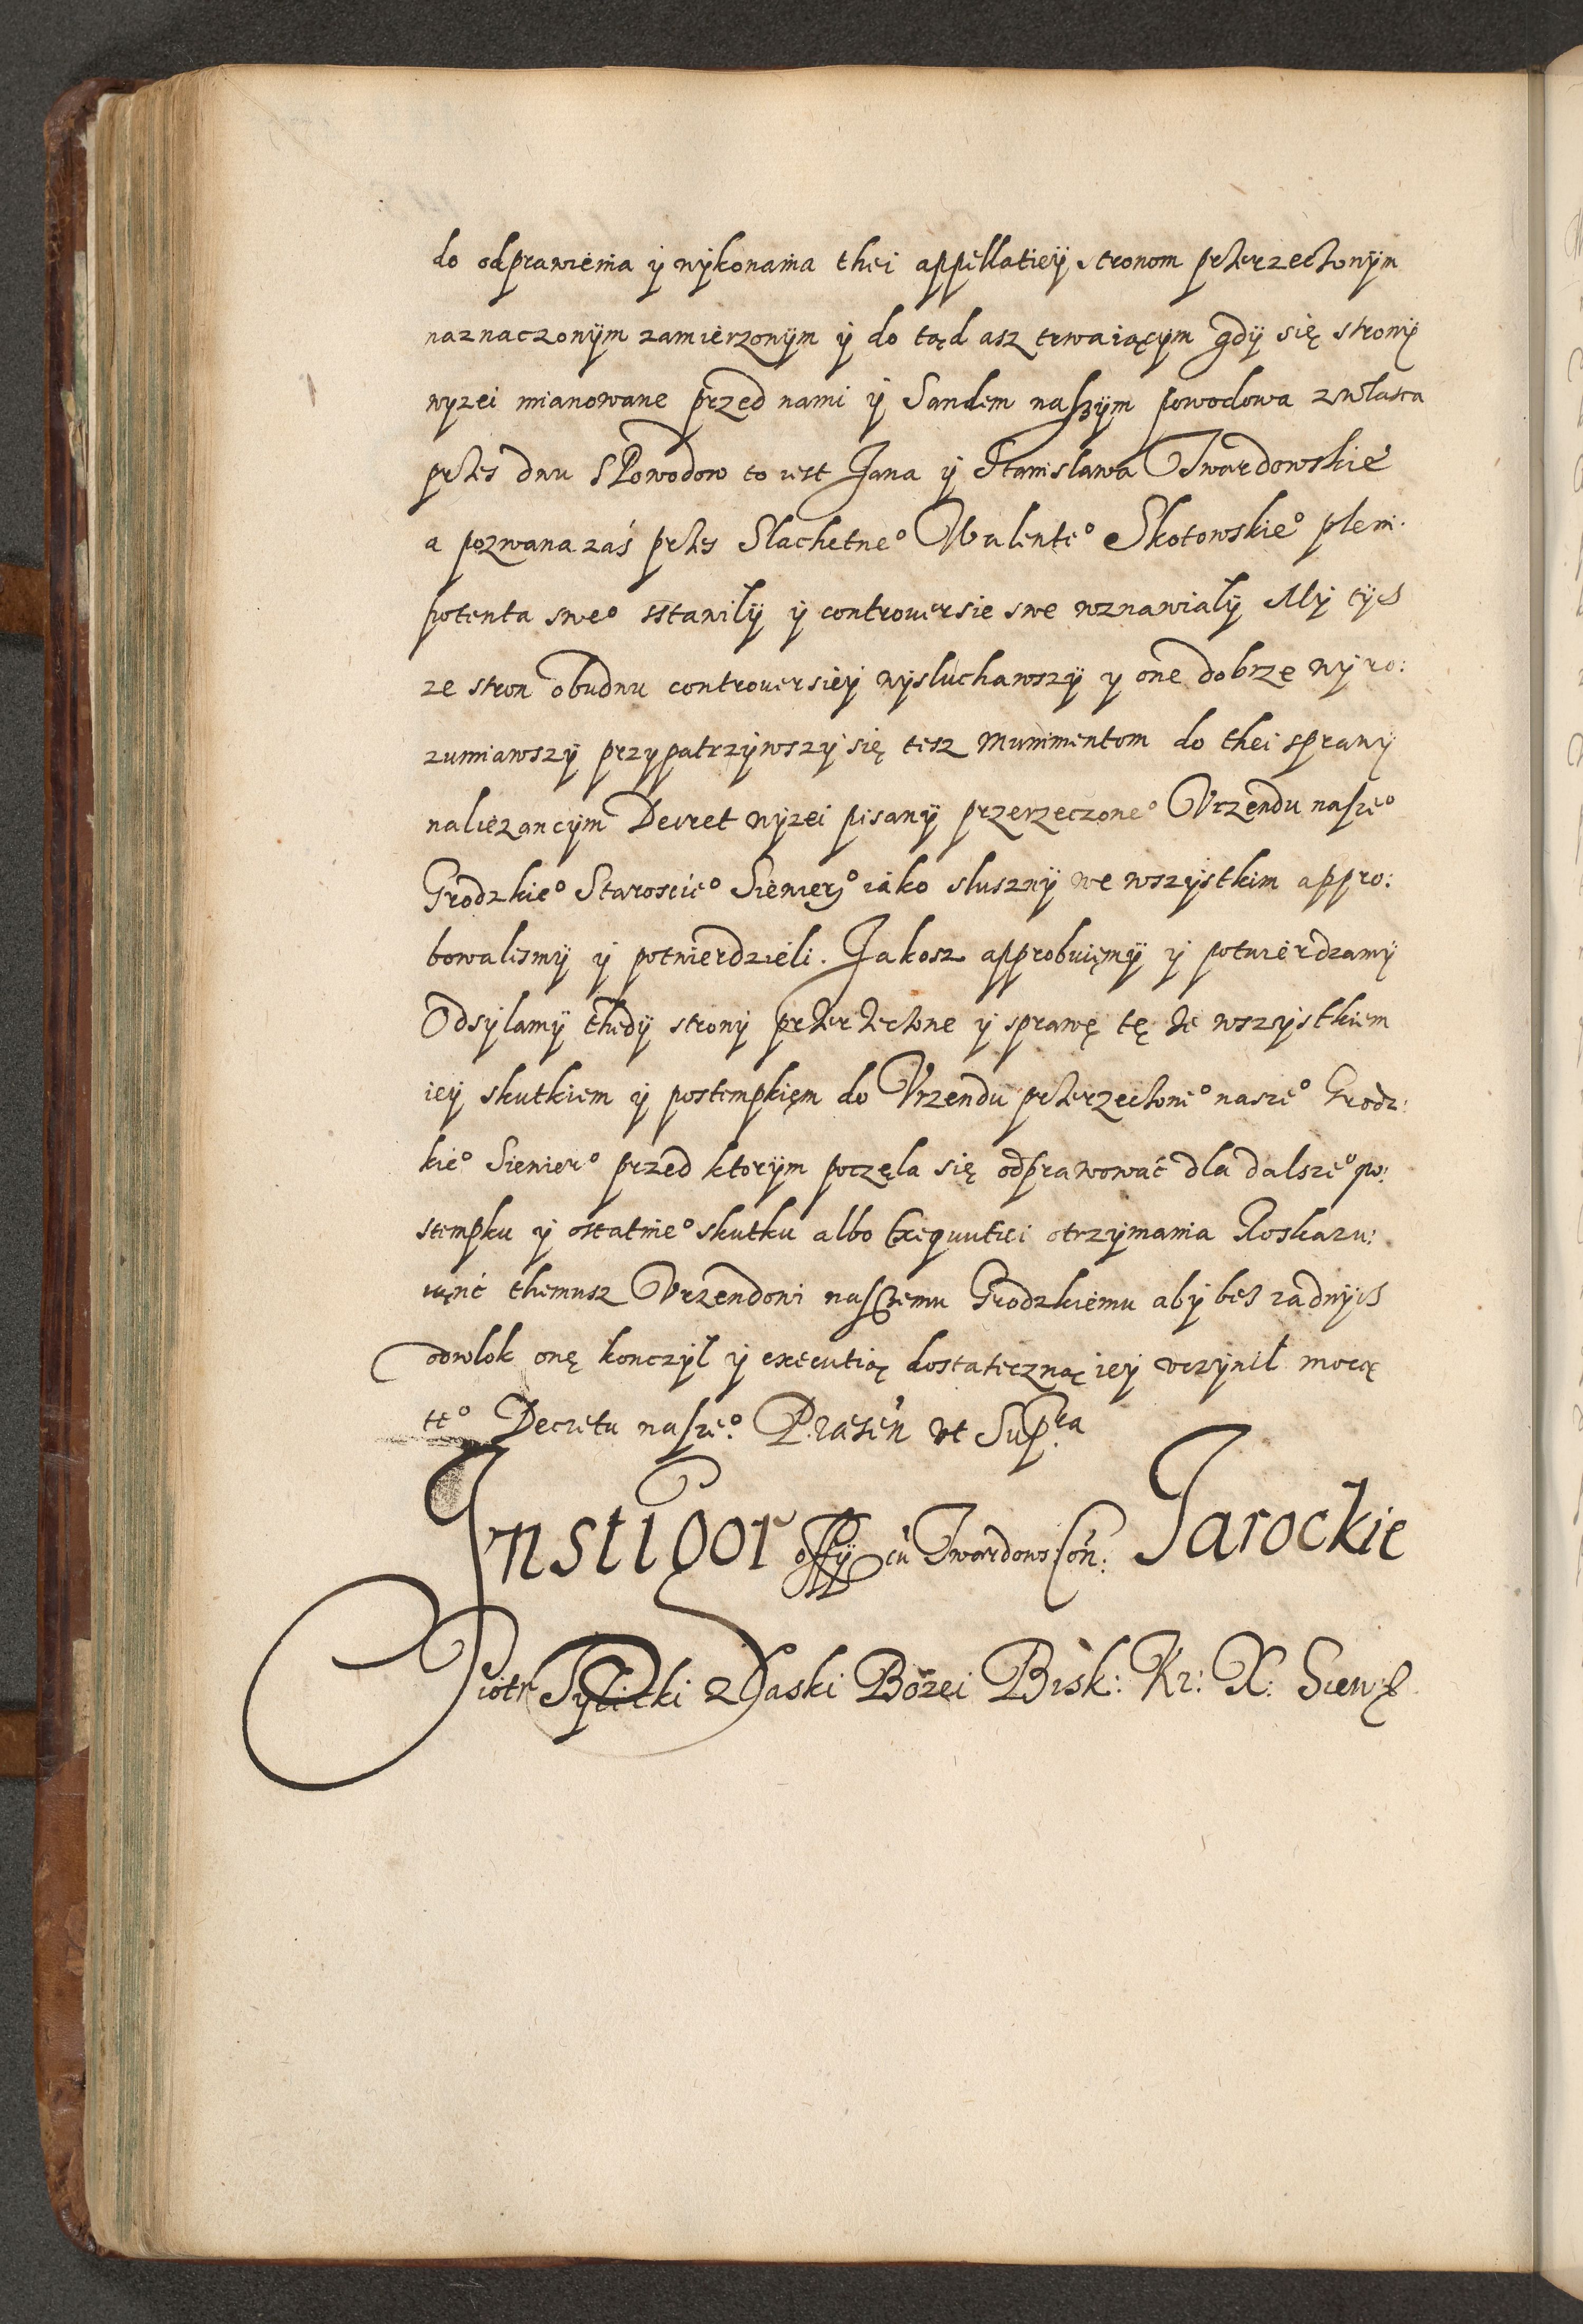 do odprawienia ÿ wÿkonania thei appellatieÿ stronom przerzeczonÿm
naznaczonÿm zamierzonÿm ÿ do tąd asz trwaiącÿm gdÿ się stronÿ
wyzei mianowane przed nami ÿ Sandem naszÿm powodowa zwłasca
przes dwu SPowodow to iest Jana ÿ Stanislawa Twardowskie
a pozwana zaś przes Slachetne° Walente° Skotowskie° pleni.
potenta swe° stawilÿ ÿ controuersie swe wznawialÿ Mÿ tÿch
ze stron obudwu controuersieÿ wÿsluchawszÿ y one dobrze wÿro:
zumiawszÿ przypatrzÿwszÿ się tesz Munimentom do thei sprawÿ
nalezancÿm Decret wÿzei pisanÿ przerzeczone° Vrzendu nasze°
Grodzkie° Staroscie° Siewier° iako slusznÿ we wszÿstkim appro:
bowalismÿ ÿ potwierdzieli. Jakosz approbuięmÿ ÿ potwierdzamÿ
Odsÿlamÿ thedÿ stronÿ przerzeczone ÿ sprawę tę ze wszÿstkiem
ieÿ skutkiem ÿ postempkięm do Vrzendu przerzeczone° nasze° Grodz:
kie° Siewier° przed ktorÿm poczęla się odprawować dla dalsze° po:
stempku ÿ ostatnie° skutku albo Exequutiei otrzÿmania Roskazu:
iąnc themusz Vrzendowi naszemu Grodzkiemu abÿ bes zadnÿch
odwlok onę konczÿl ÿ executią dostateczną ieÿ vczÿnil mocą
te° Decretu nasze°. Præsen vt Supra
Instigor offÿ cu Twardows: con: Jarockie
Piotr Tÿlicki z Łaski Bozei Bisk: Kr: X: Siew: